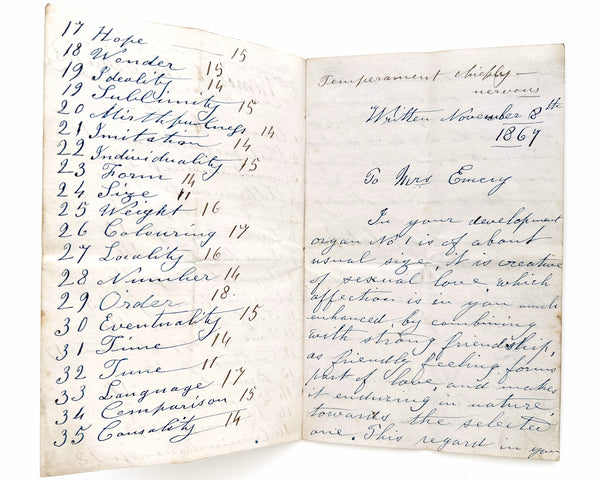 17 Hope 15
18 Wonder 15
19 Ideality 14
19 Sublimity 15
20 Mirthfulness 14
21 Imitation 14
22 Individuality 15
23 Form 14
24 Size 11
25 Weight 16
26 Colouring 17
27 Locality 16
28 Number 14
29 Order 18.
30 Eventuality 15
31 Time 14
32 Tune 11
33 Language 17
34 Comparison 15
35 Causality 14
Temperament chiefly
nervous
Written November 8th
1867
To Mrs Emery
In your development
organ No 1 is of about
usual size, it is creative
of sexual love, which
affection is in you much
enhanced, by combining
with strong friendship,
as friendly feeling forms
part of love, and makes
it enduring in nature,
towards the selected
one. This regard in you